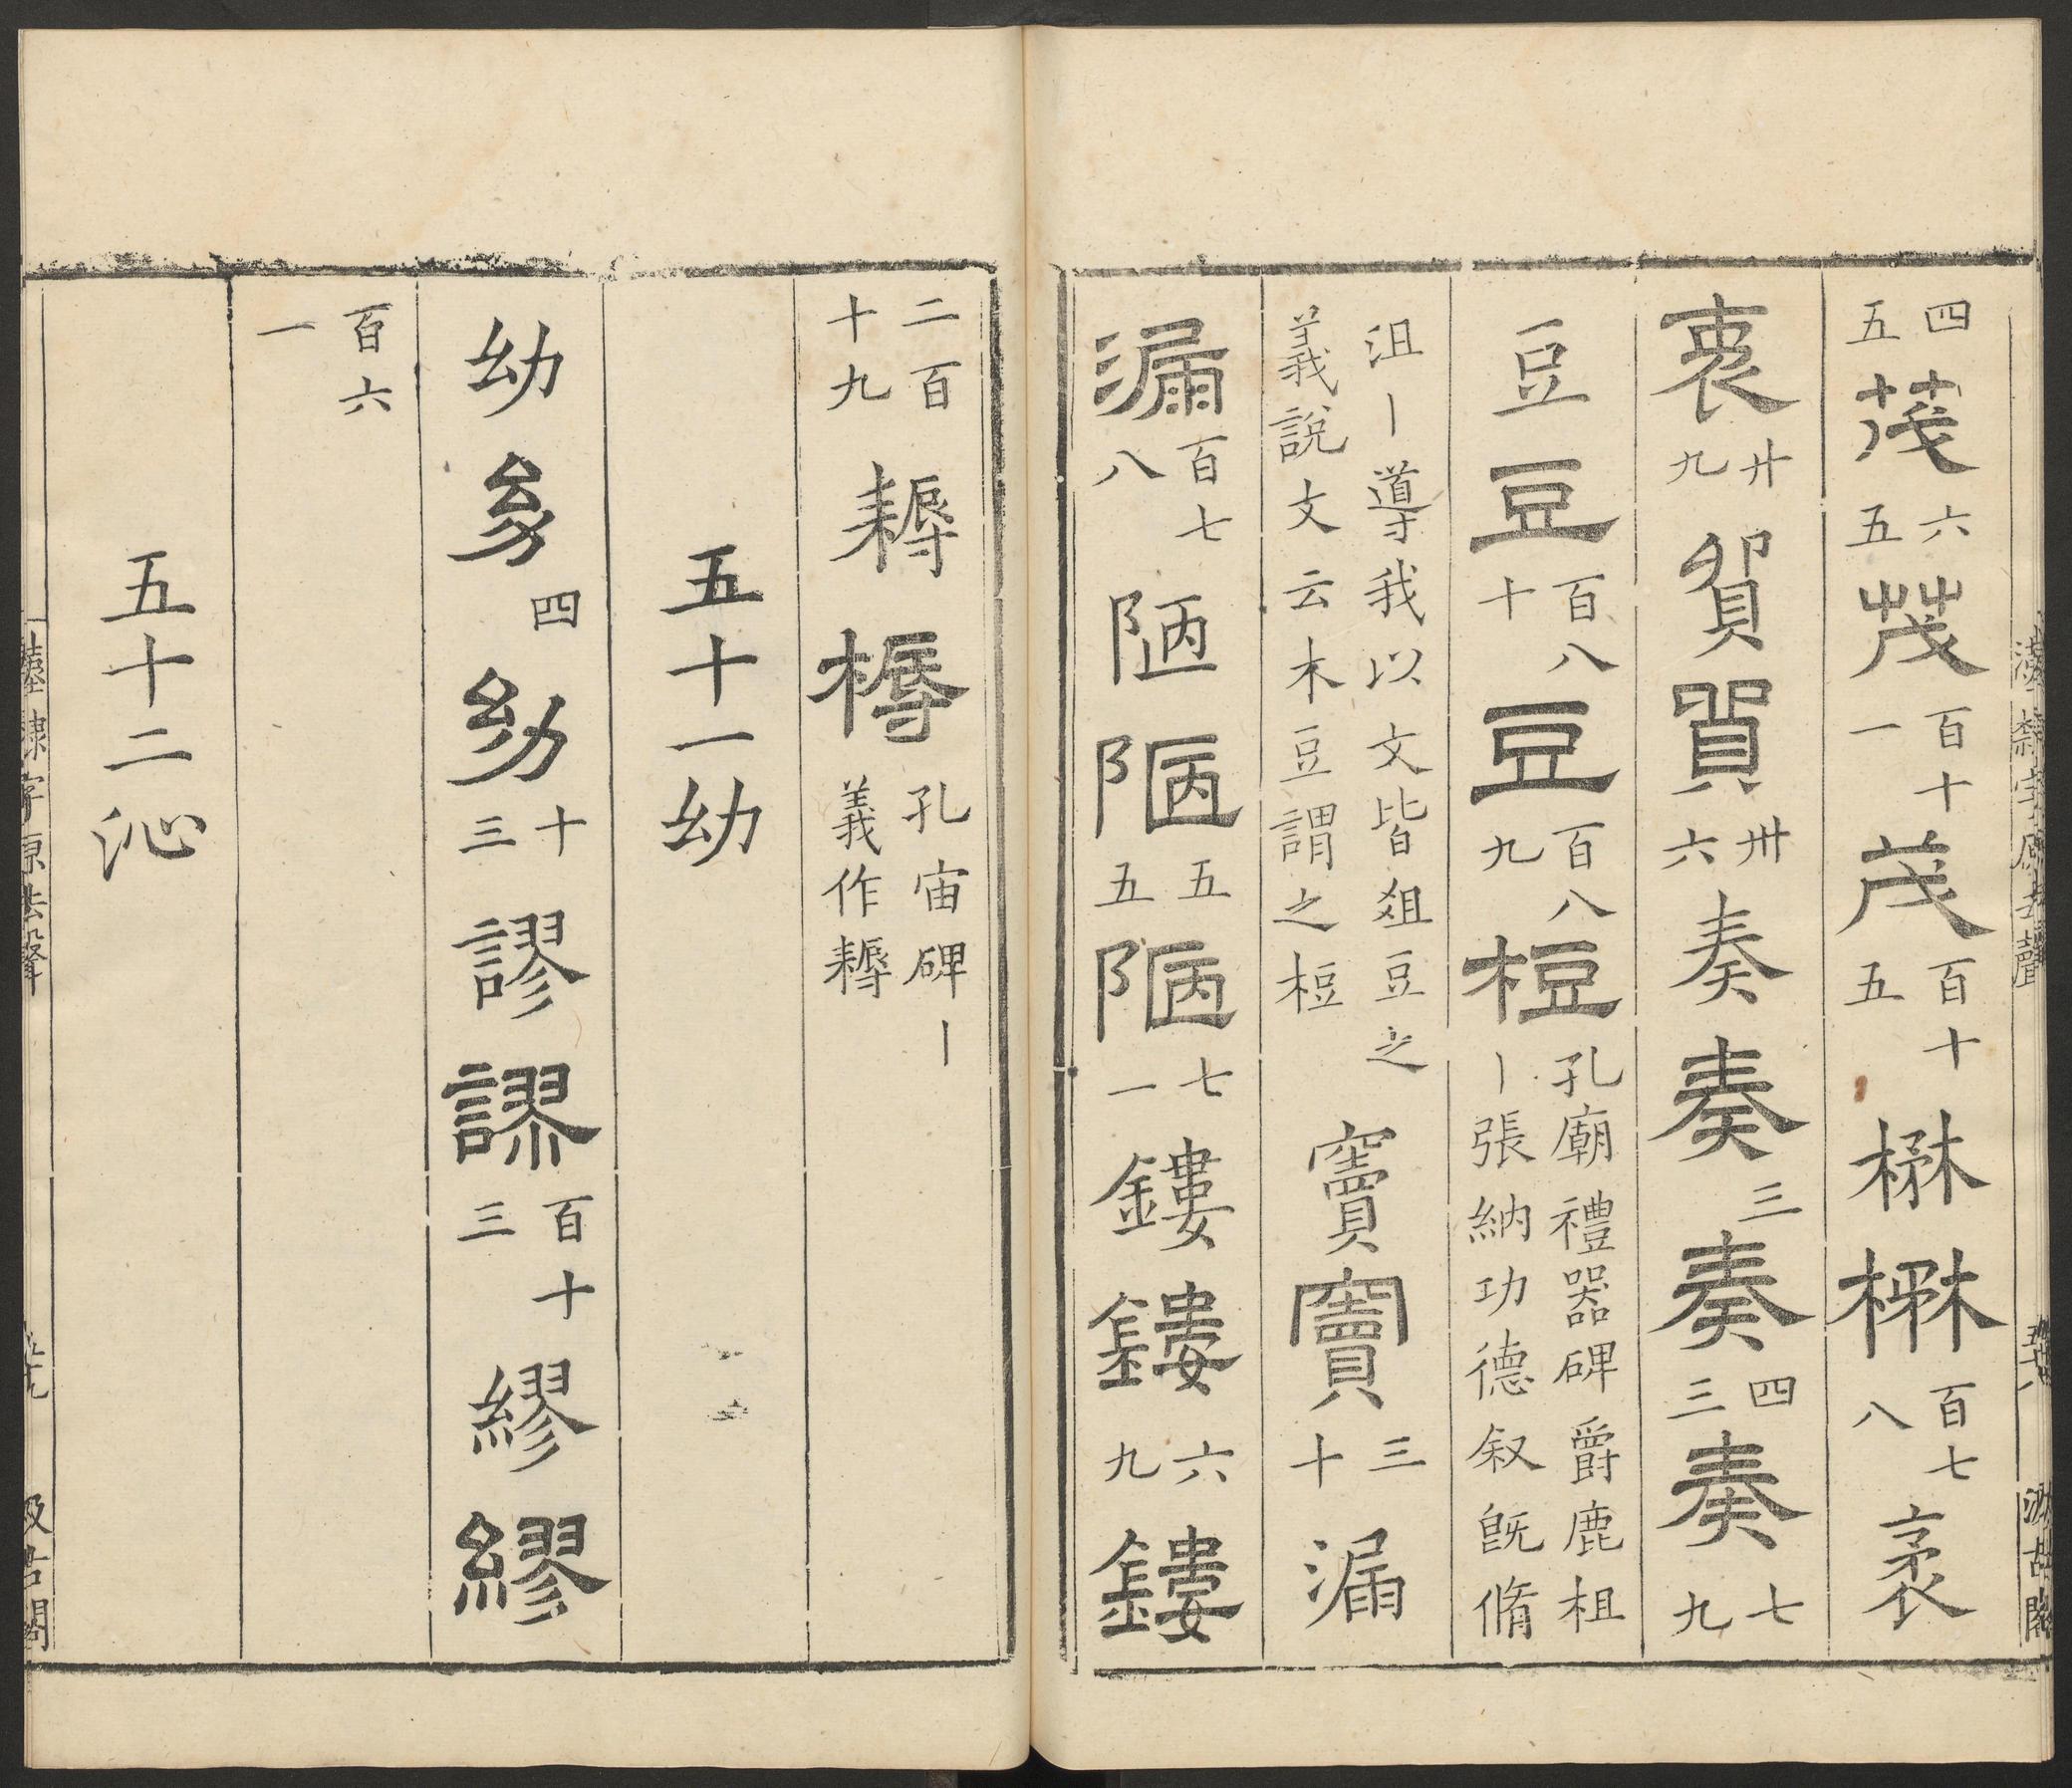 四五茂六五茂百十一茂百十五楙楙百七八袤
袤廿九貿貿卅六奏奏三奏四三奏七九
豆豆百八十豆百八九梪孔廟禮器碑爵鹿柤丨張納功德叙旣脩
沮丨導我以文皆爼豆之義說文云木豆謂之梪竇竇三十漏
漏百七八陋陋五五陋七一鏤鏤六九鏤
二百十九耨槈孔宙碑丨義作耨
五十一幼
幼幼四幼十三謬謬百十三繆繆
百六一
五十二沁